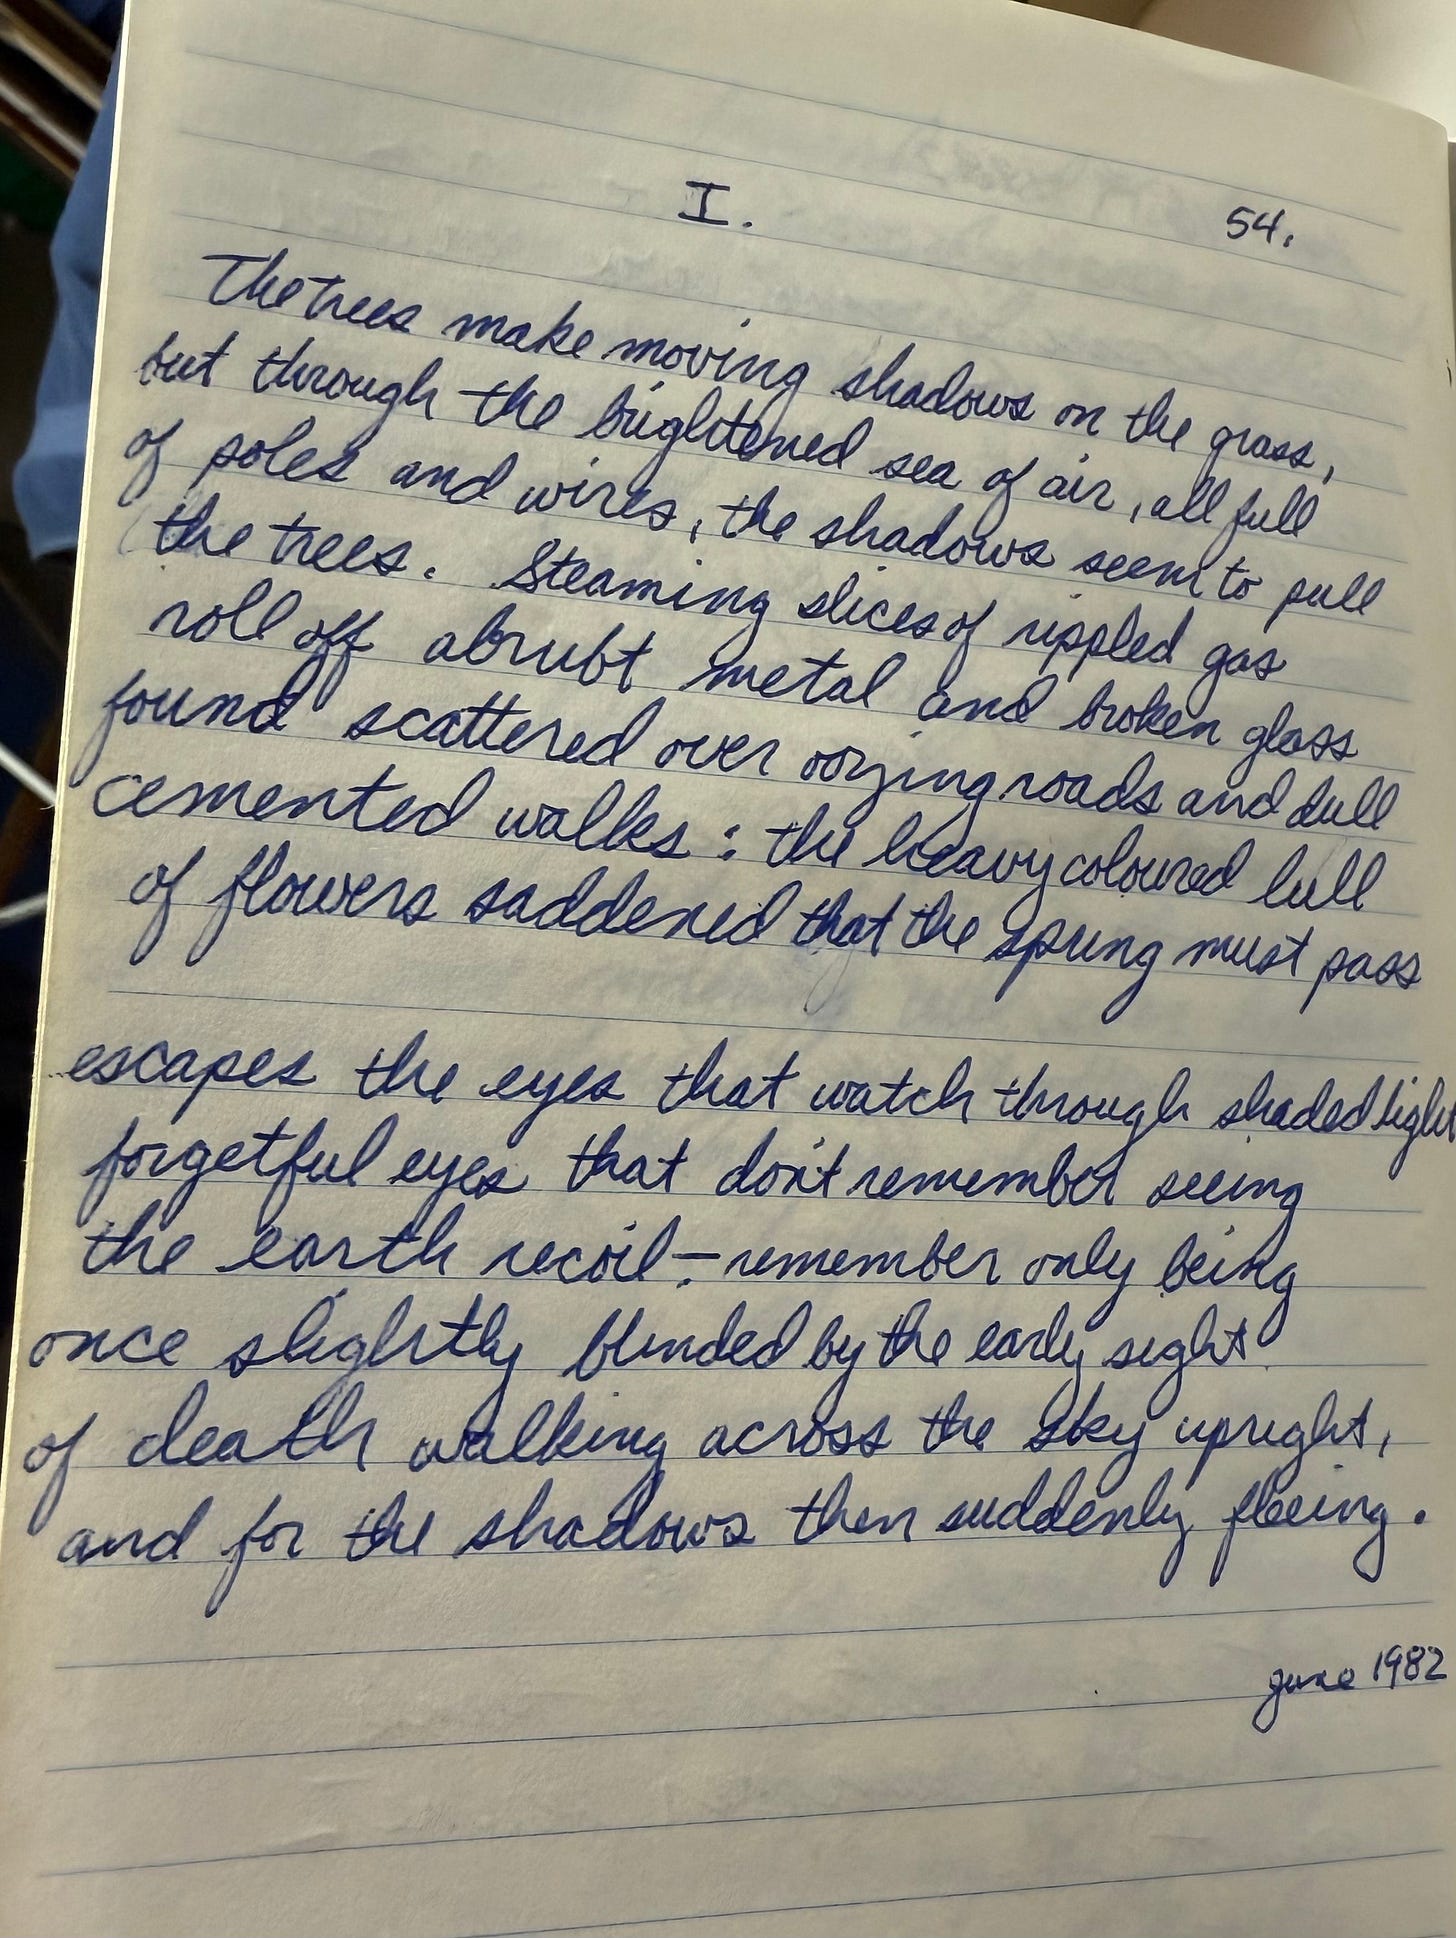 I.
54.
The trees make moving shadows on the grass,
but through the brightened sea of air, all full
of poles and wires, the shadows seem to pull
the trees. Steaming slices of rippled gas
roll off abrubt metal and broken glass
found scattered over oozing roads and dull
cemented walks: the heavy coloured lull
of flowers saddened that the spring must pass
escapes the eyes that watch through shaded light
forgetful eyes that don't remember seeing
the earth recoil – remember only being
once slightly blinded by the early sight
of death walking across the sky upright,
and for the shadows then suddenly fleeing.
june 1982